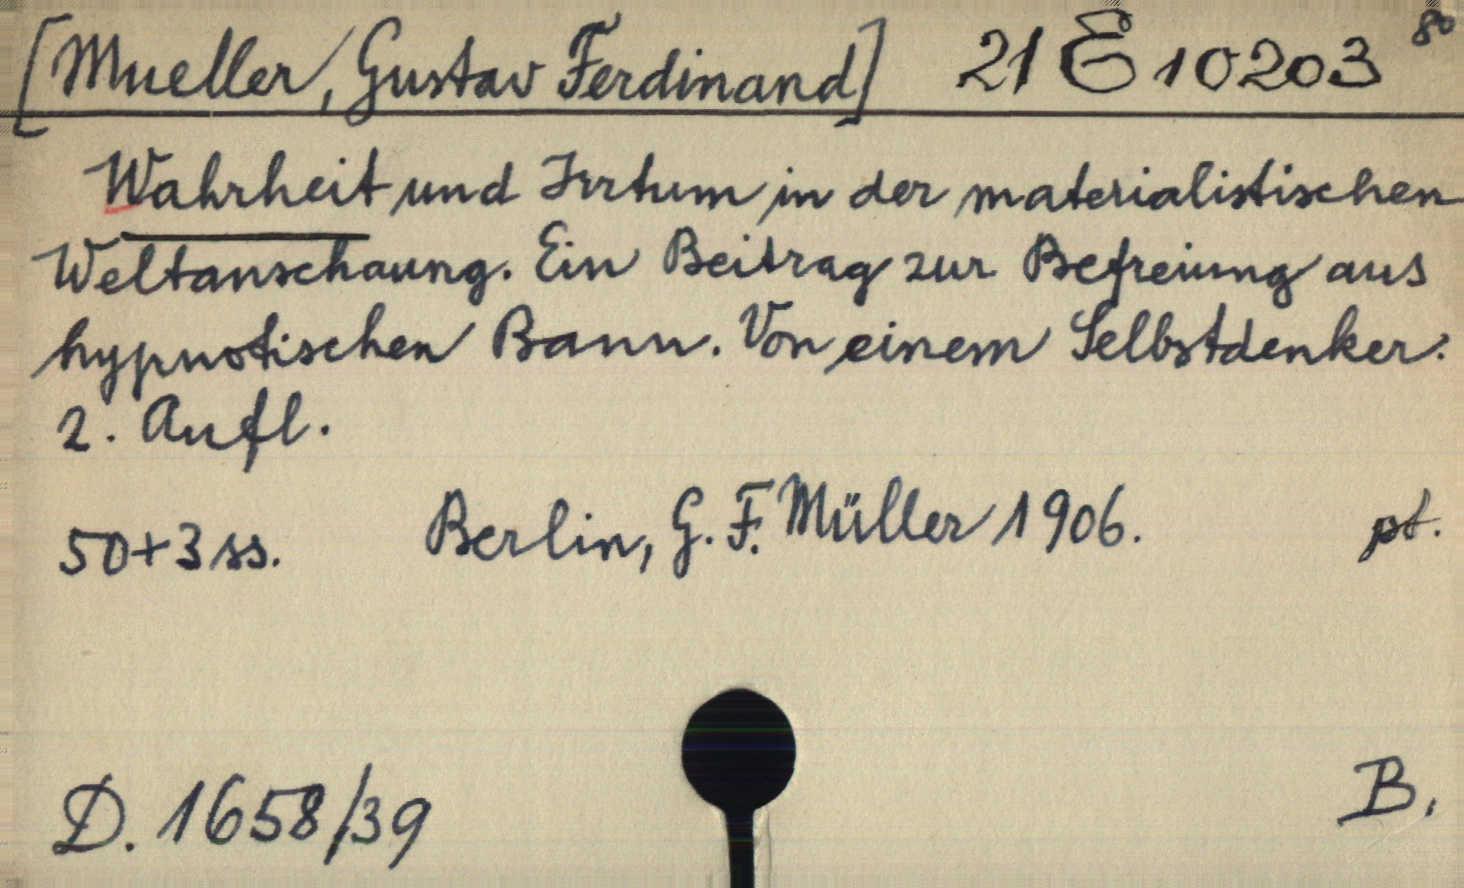 [Mueller, Gustav Ferdinand] 21 E 10203 8o
Wahrheit und Irrtum in der materialistischen
Weltanschauung. Ein Beitrag zur Befreiung aus
hypnotischen Bann. Von einem Selbstdenker.
2. Aufl.
50+3 ss. Berlin, G. F. Müller 1906. pt.
D. 1658/39 B.